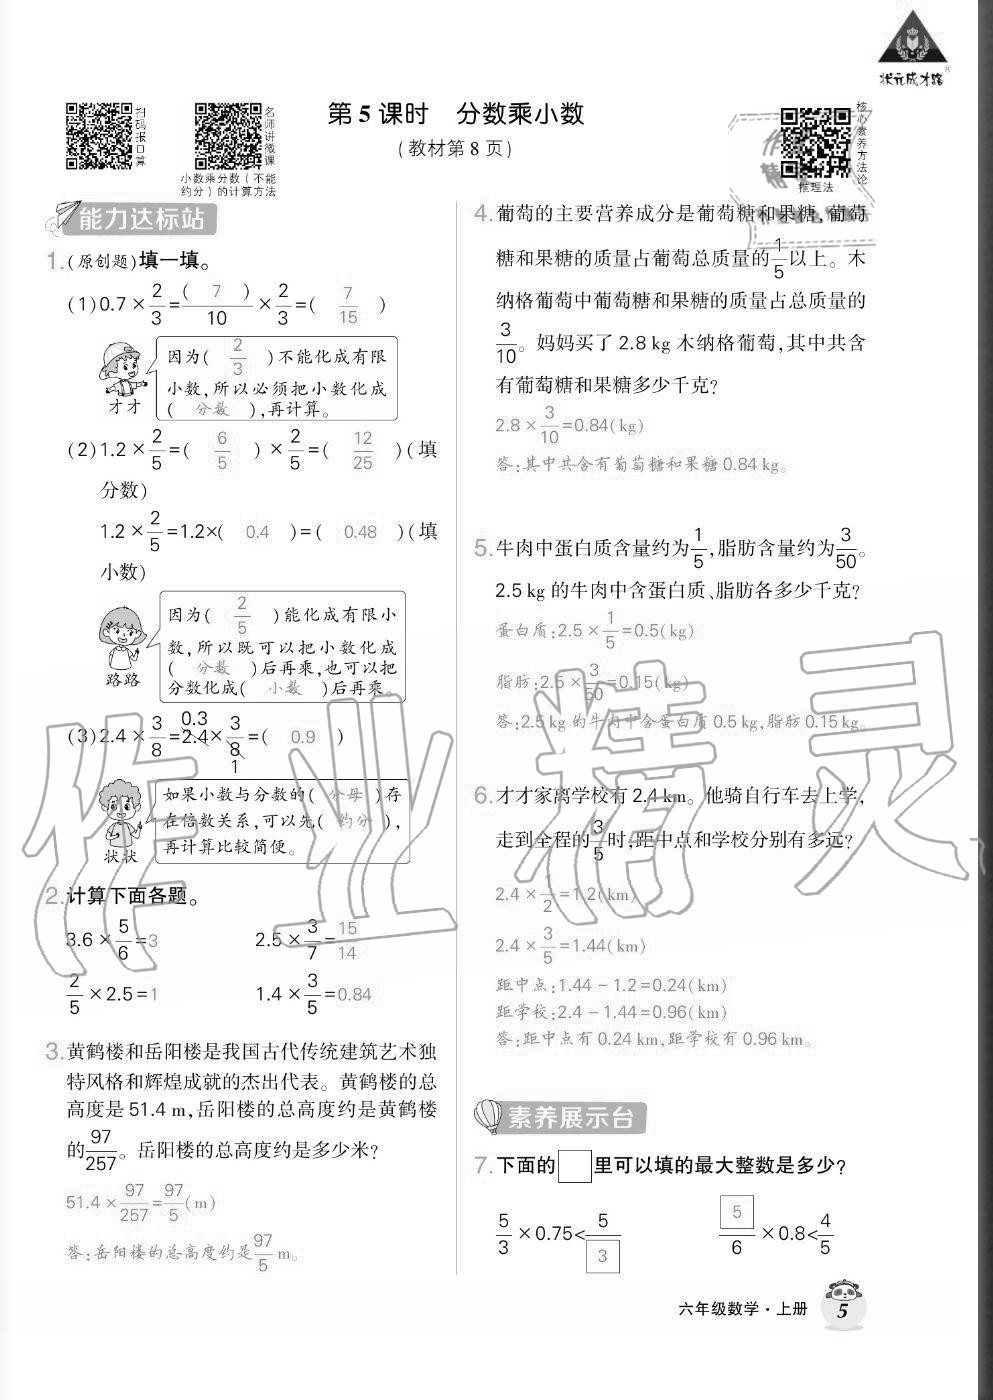 状元成才路
第5课时 分数乘小数
(教材第8页)
扫码报口算
名师讲微课
小数乘分数(不能
约分)的计算方法
核心素养方法论
推理法
能力达标站
1.(原创题)填一填。
(1)0.7×2/3=( 7 )/10×2/3=( 7/15 )
因为( 2/3 )不能化成有限
小数,所以必须把小数化成
( 分数 ),再计算。
才才
(2)1.2×2/5=( 6/5 )×2/5=( 12/25 )(填
分数)
1.2×2/5=1.2×( 0.4 )=( 0.48 )(填
小数)
因为( 2/5 )能化成有限小
数,所以既可以把小数化成
( 分数 )后再乘,也可以把
分数化成( 小数 )后再乘。
路路
(3)2.4×3/8=2.4×3/8=( 0.9 )
0.3
1
如果小数与分数的( 分母 )存
在倍数关系,可以先( 约分 ),
再计算比较简便。
状状
2.计算下面各题。
3.6×5/6=3 2.5×3/7=15/14
2/5×2.5=1 1.4×3/5=0.84
3.黄鹤楼和岳阳楼是我国古代传统建筑艺术独
特风格和辉煌成就的杰出代表。黄鹤楼的总
高度是51.4 m,岳阳楼的总高度约是黄鹤楼
的97/257。岳阳楼的总高度约是多少米?
51.4×97/257=97/5(m)
答:岳阳楼的总高度约是97/5 m。
4.葡萄的主要营养成分是葡萄糖和果糖,葡萄
糖和果糖的质量占葡萄总质量的1/5以上。木
纳格葡萄中葡萄糖和果糖的质量占总质量的
3/10。妈妈买了2.8 kg木纳格葡萄,其中共含
有葡萄糖和果糖多少千克?
2.8×3/10=0.84(kg)
答:其中共含有葡萄糖和果糖0.84 kg。
5.牛肉中蛋白质含量约为1/5,脂肪含量约为3/50。
2.5 kg的牛肉中含蛋白质、脂肪各多少千克?
蛋白质:2.5×1/5=0.5(kg)
脂肪:2.5×3/50=0.15(kg)
答:2.5 kg的牛肉中含蛋白质0.5 kg,脂肪0.15 kg。
6.才才家离学校有2.4 km。他骑自行车去上学,
走到全程的3/5时,距中点和学校分别有多远?
2.4×1/2=1.2(km)
2.4×3/5=1.44(km)
距中点:1.44-1.2=0.24(km)
距学校:2.4-1.44=0.96(km)
答:距中点有0.24 km,距学校有0.96 km。
素养展示台
7.下面的□里可以填的最大整数是多少?
5/3×0.75<5/3 5/6×0.8<4/5
六年级数学·上册 5
作业精灵